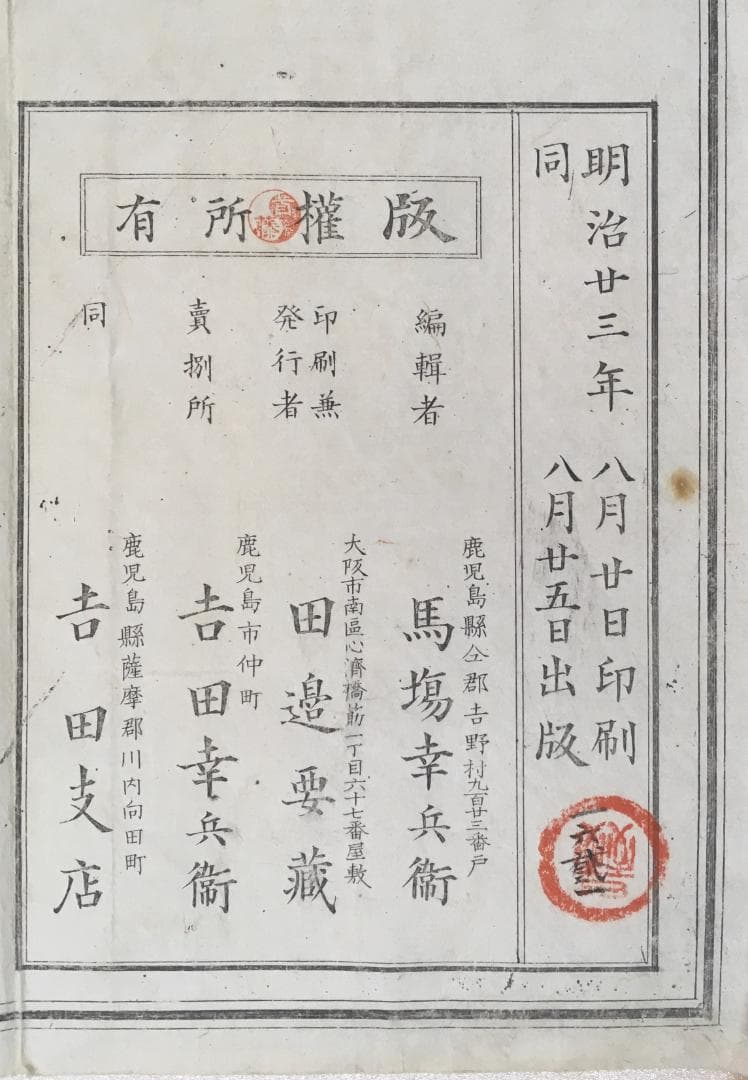 明治廿三年八月廿日印刷
同八月廿五日出版
版權所有
編輯者
鹿児島縣仝郡吉野村九百廿三番戸
馬塲幸兵衞
印刷兼
発行者
大阪市南區心濟橋筋一丁目六十七番屋敷
田邉要藏
賣捌所
鹿児島市仲町
吉田幸兵衞
同
鹿児島縣薩摩郡川内向田町
吉田支店